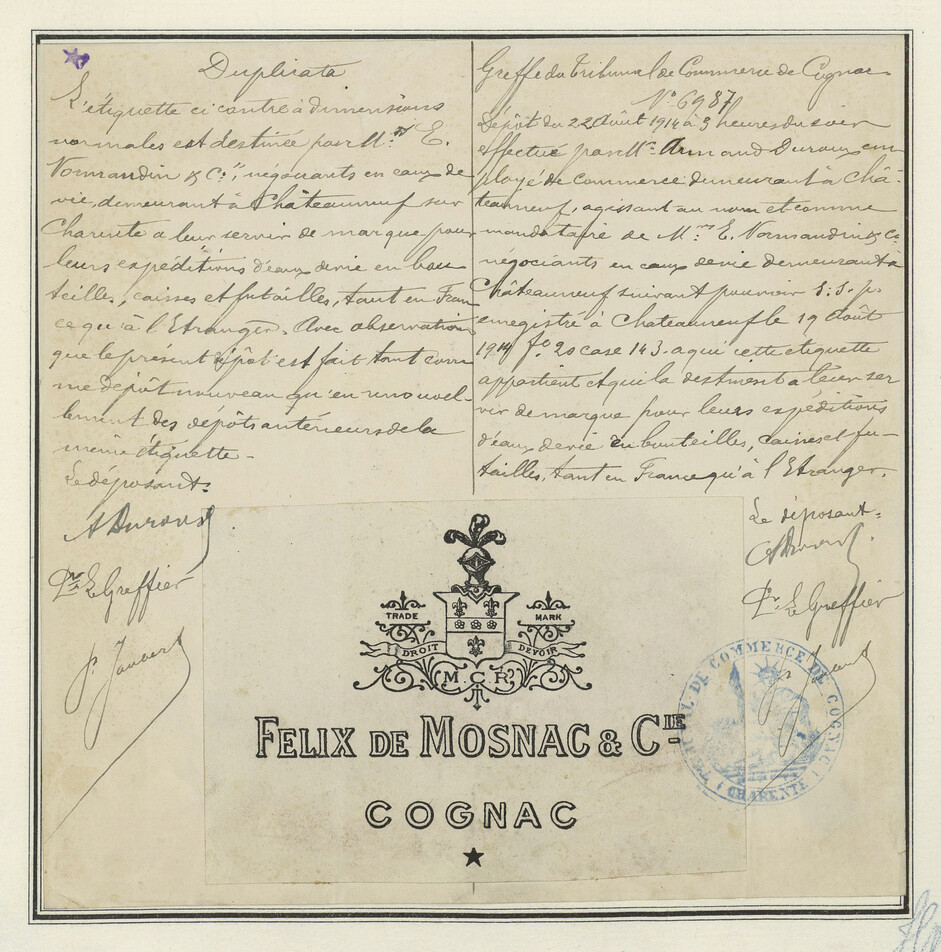 Duplicata
L'étiquette ci contre à dimensions
normales est destinée par M.rs E.
Normandin & C.ie, négociants en eaux de
vie, demeurant à Châteauneuf sur
Charente a leur servir de marque pour
leurs expéditions d'eaux devie en bou
teilles, caisses et futailles, tant en Fran
ce qu'à l'Etranger. Avec observation
que le présent dépôt est fait tant com
me dépôt nouveau qu'en renouvel-
lement des dépôts antérieurs de la
même étiquette -
Le déposant:
A Duroux
Pr. Le Greffier
Greffe du Tribunal de Commerce de Cognac
N° 6987
Dépôt du 22 Août 1914 à 3 heures du soir
effectué par Mr. Armand Duroux em
ployé de commerce demeurant à Châ-
teauneuf, agissant au nom et comme
mandataire de M.rs E. Normandin & Cie
négociants en eaux devie demeurant à
Châteauneuf suivant pouvoir s. s. p.
enregistré à Chateauneuf le 19 Août
1914 f° 20 case 143. a qui cette étiquette
appartient et qui la destinent a leur ser
vir de marque pour leurs expéditions
d'eaux devie en bouteilles, caisses et fu-
tailles, tant en France qu'à l'Etranger.
Le déposant:
A Duroux
Pr. Le Greffier
TRADE MARK
DROIT DEVOIR
M.C.R.
FELIX DE MOSNAC & CIE
COGNAC
DE COMMERCE DE COGNAC
(CHARENTE)